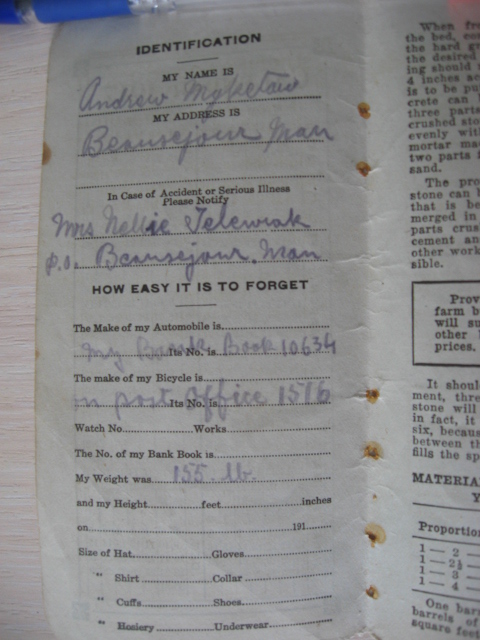 IDENTIFICATION
MY NAME IS
Andrew Myketaw
MY ADDRESS IS
Beausejour Man
In Case of Accident or Serious Illness
Please Notify
Mrs Nellie Telewiak
p.o. Beausejour. Man
HOW EASY IT IS TO FORGET
The Make of my Automobile is
my Bank Book 10634
Its No. is
The make of my Bicycle is
in post office 1516
Its No. is
Watch No. Works
The No. of my Bank Book is
My Weight was 155 lb.
and my Height feet inches
on 191
Size of Hat Gloves
" Shirt Collar
" Cuffs Shoes
" Hosiery Underwear
When fre
the bed, co
the hard gr
the desired
ing should
4 inches ac
is to be pu
crete can
three parts
crushed sto
evenly wit
mortar ma
two parts
sand.
The pro
stone can b
that is be
merged in
parts crus
cement an
other work
sible.
Prov
farm b
will su
other
prices.
It shoul
ment, thre
stone will
in fact, it
six, becaus
between th
fills the sp
MATERIA
Y
Proportion
1 — 2 —
1 — 2½ —
1 — 3 —
1 — 4 —
One bar
barrels of
square feet